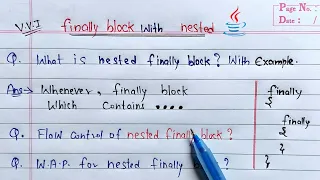 V.V.I finally block with nested
Page No. :
Date : /
Q. What is nested finally block? With Example.
Ans→ Whenever, finally block
Which Contains ....
finally
{
finally
{
}
}
Q. Flow control of nested finally block?
Q. W.A.P. for nested finally ?